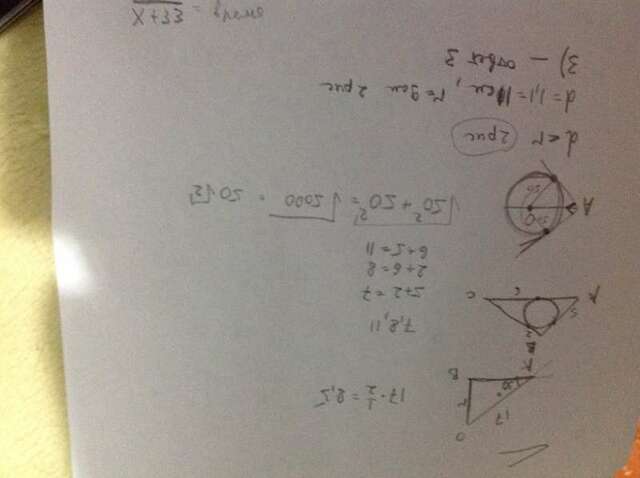 O
17
r
30°
A
B
17 · 1/2 = 8,5
B
2
5
A
6
C
7, 8, 11
5+2=7
2+6=8
6+5=11
A
50
O
50
√50² + 50² = √5000 = 50√2
d < r 2 рис
d = 1,1 = 11 см, r = 9 см 2 рис
3) — ответ 3
X + 33 =